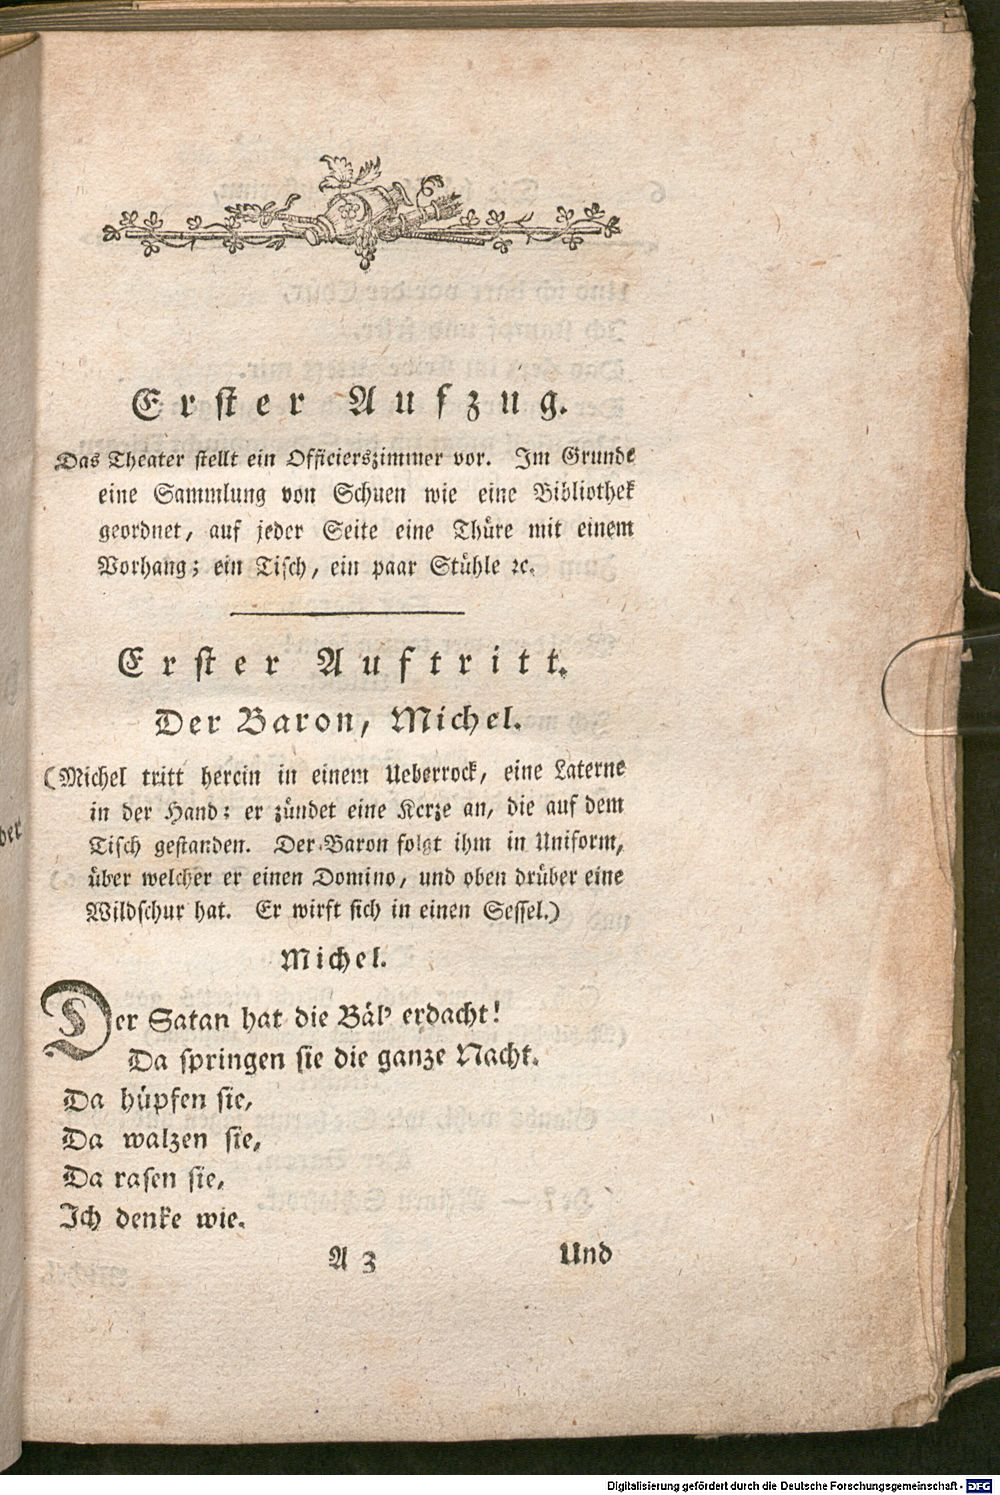 Erster Aufzug.
Das Theater stellt ein Officierszimmer vor. Im Grunde
eine Sammlung von Schuen wie eine Bibliothek
geordnet, auf jeder Seite eine Thüre mit einem
Vorhang; ein Tisch, ein paar Stühle ꝛc.
Erster Auftritt.
Der Baron, Michel.
(Michel tritt herein in einem Ueberrock, eine Laterne
in der Hand: er zündet eine Kerze an, die auf dem
Tisch gestanden. Der Baron folgt ihm in Uniform,
über welcher er einen Domino, und oben drüber eine
Wildschur hat. Er wirft sich in einen Sessel.)
Michel.
Der Satan hat die Bäl' erdacht!
Da springen sie die ganze Nacht.
Da hüpfen sie,
Da walzen sie,
Da rasen sie,
Ich denke wie.
A 3 Und
Digitalisierung gefördert durch die Deutsche Forschungsgemeinschaft - DFG